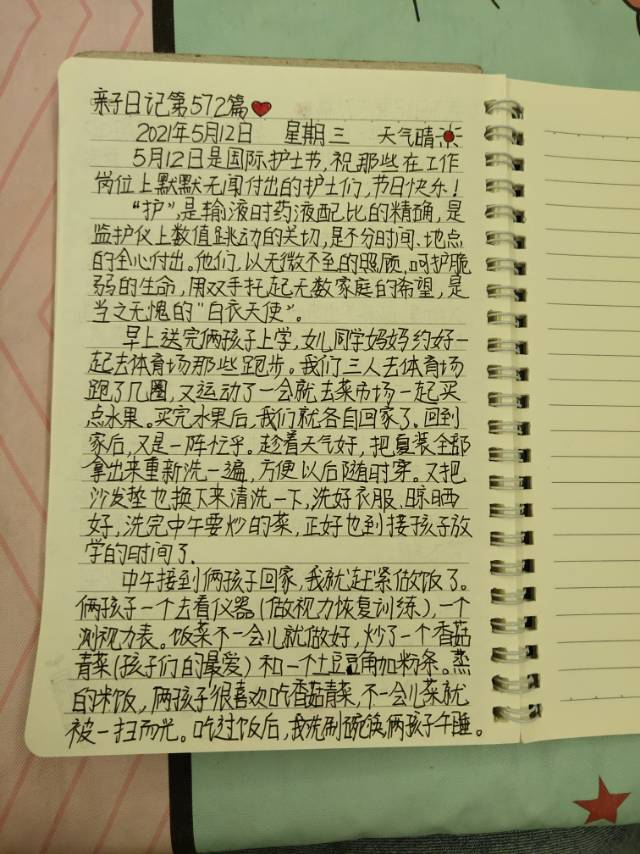 亲子日记第572篇
2021年5月12日 星期三 天气晴
5月12日是国际护士节,祝那些在工作
岗位上默默无闻付出的护士们,节日快乐!
“护”,是输液时药液配比的精确,是
监护仪上数值跳动的关切,是不分时间、地点
的全心付出。他们,以无微不至的照顾,呵护脆
弱的生命,用双手托起无数家庭的希望,是
当之无愧的“白衣天使”。
早上送完俩孩子上学,女儿同学妈妈约好一
起去体育场那些跑步。我们三人去体育场
跑了几圈,又运动了一会就去菜市场一起买
点水果。买完水果后,我们就各自回家了。回到
家后,又是一阵忙乎。趁着天气好,把夏装全部
拿出来重新洗一遍,方便以后随时穿。又把
沙发垫也换下来清洗一下,洗好衣服、晾晒
好,洗完中午要炒的菜,正好也到接孩子放
学的时间了.
中午接到俩孩子回家,我就赶紧做饭了。
俩孩子一个去看仪器(做视力恢复训练),一个
测视力表。饭菜不一会儿就做好,炒了一个香菇
青菜(孩子们的最爱)和一个土豆豆角加粉条。蒸
的米饭,俩孩子很喜欢吃香菇青菜,不一会儿菜就
被一扫而光。吃过饭后,我洗刷碗筷,俩孩子午睡。